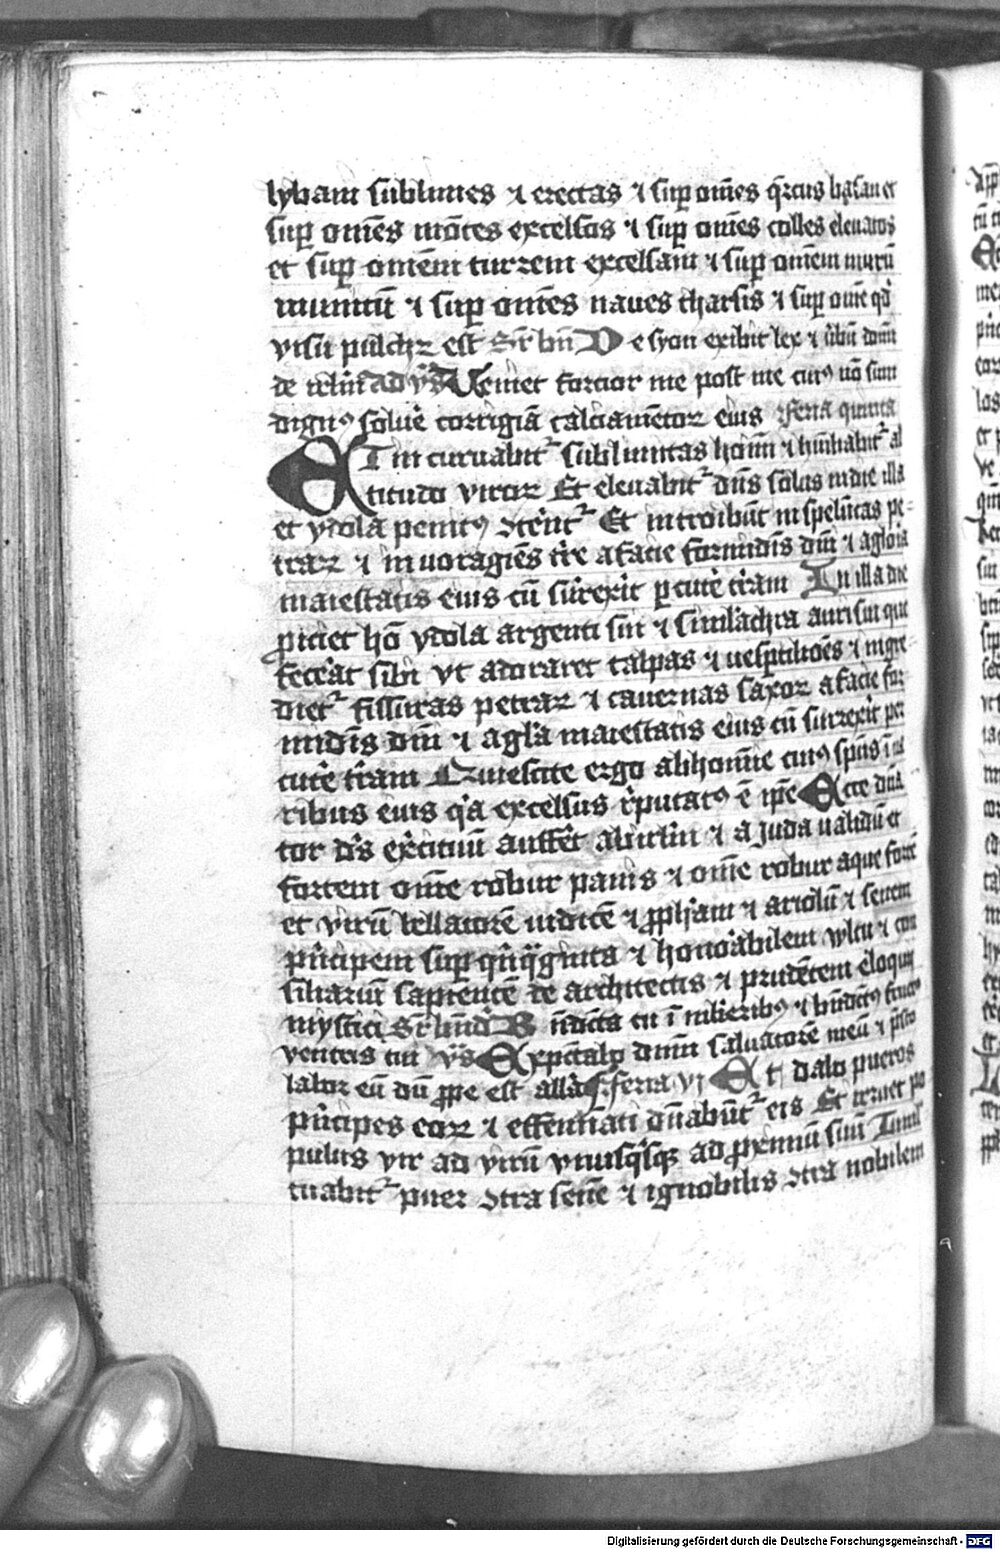 lybani sublimes ⁊ erectas ⁊ sup om̄es q̄rcus basan et
sup om̄es mōtes excelsos ⁊ sup om̄es colles eleuatos
et sup om̄em turrem excelsam ⁊ sup om̄em murū
munitū ⁊ sup om̄es naues tharsis ⁊ sup om̄e qd̄
visu pulchꝝ est De syon exibit lex ⁊ v̄bū dom̄
de irlm̄ ad Veniet forcior me post me cuiꝰ nō sum
dignꝰ soluē corrigiā calciamētoꝝ eius feria quinta
ET incuruabit᷑ sublimitas hoīm ⁊ humiliabit᷑ al
titudo viroꝝ Et eleuabit᷑ dn̄s solus in die illa
et ydola penitꝰ ꝯterēt᷑ Et introibūt in speluncas pe
traꝝ ⁊ in voragiēs tr̄e a facie formidīs dn̄i ⁊ a gloria
maiestatis eius cū surrex̄it ꝑcutē tr̄am In illa die
ꝓiciet hō ydola argenti sui ⁊ simulachra auri sui que
fecerat sibi vt adoraret talpas ⁊ vesptiliōes ⁊ ingre
diet᷑ fissuras petraꝝ ⁊ cauernas saxoꝝ a facie for
midīs dn̄i ⁊ a gl̄a maiestatis eius cū surrexit per
cutē tr̄am Quiescite ergo ab homīe cuiꝰ sp̄us ī na
ribus eius q̄a excelsus reputatꝰ ē ip̄e Ecce dn̄a
tor dn̄s exercituū auffert a irlm̄ ⁊ a Juda validū et
fortem om̄e robur panis ⁊ om̄e robur aque fortē
et virū bellatorē iudicē ⁊ ꝓph̄am ⁊ ariolū ⁊ senem
pn̄cipem sup q̄nq̄ginta ⁊ honorabilem vultu ⁊ con
siliariū sapientē de architectis ⁊ prudētem eloquii
mystici Bn̄dicta tu ī mulieribꝰ ⁊ bn̄dictꝰ fructꝰ
ventris tui vs̄ Expectabo dn̄m saluatorē meū ⁊ p̄sto
labor eū dū ꝓpe est all̄a feria vi Et dabo pueros
pn̄cipes eoꝝ ⁊ effeminati dn̄abūt᷑ eis Et irruet po
pulus vir ad virū vnusq̄sqꝫ ad ꝓximū suū Tumul
tuabit᷑ puer ꝯtra senē ⁊ ignobilis ꝯtra nobilem
Digitalisierung gefördert durch die Deutsche Forschungsgemeinschaft - DFG